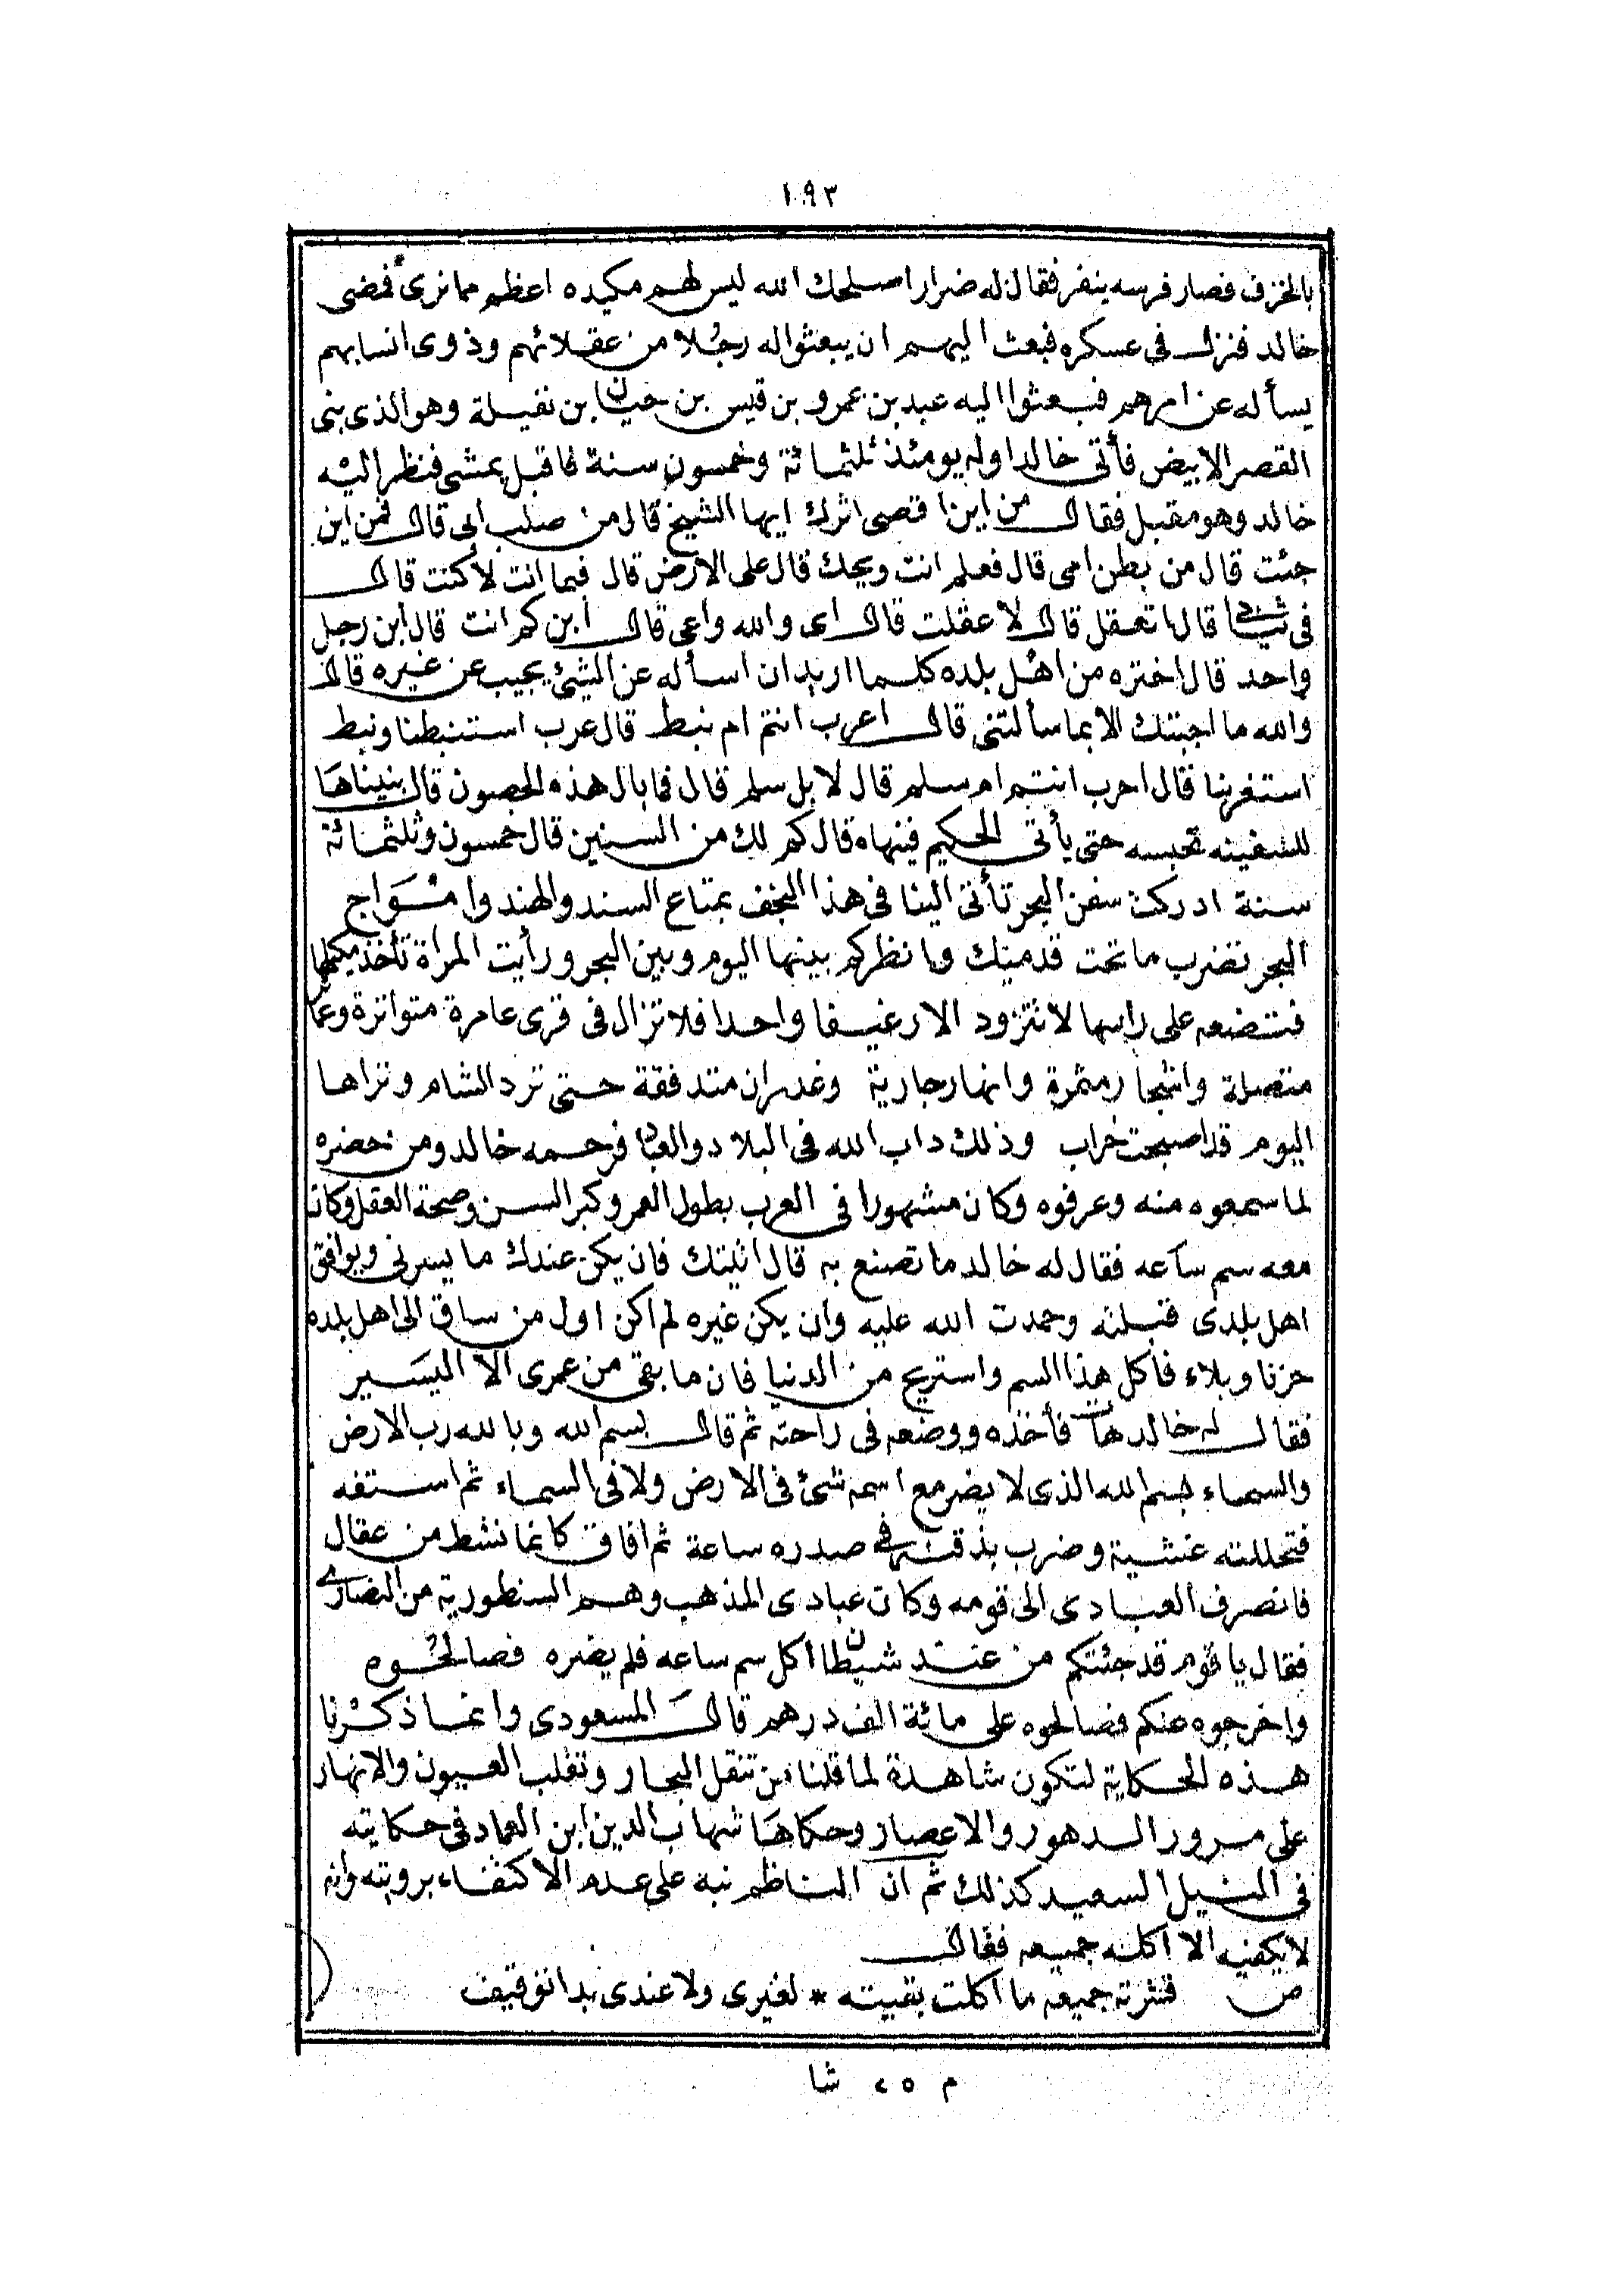 ١٩٣
بالخزف فصار فرسه ينفر فقال له ضرار اصلحك الله ليس لهم مكيده اعظم مما نرى فمضى
خالد فنزل فى عسكره فبعث اليهم ان يبعثوا له رجلا من عقلائهم وذوى انسابهم
يسأله عن امرهم فبعثوا اليه عبد بن عمرو بن قيس بن حيان بن نفيلة وهو الذى بنى
القصر الابيض فأتى خالدا وله يومئذ ثلثمائة وخمسون سنة فاقبل يمشى فنظر اليه
خالد وهو مقبل فقال من اين اقصى اثرك ايها الشيخ قال من صلب ابى قال فمن اين
جئت قال من بطن امى قال فعلم انت ويحك قال على الارض قال فيما انت لا كنت قال
فى ثيابى قال اتعقل قال لا عقلت قال اى والله واعى قال ابن كم انت قال ابن رجل
واحد قال اختره من اهل بلده كلما اريد ان اسأله عن الشئ يجيب عن غيره قال
والله ما اجبتك الا بما سألتنى قال اعرب انتم ام نبط قال عرب استنبطنا ونبط
استعربنا قال احرب انتم ام سلم قال لا بل سلم قال فما بال هذه الحصون قال بنيناها
للسفيه نحبسه حتى يأتى الحكيم فينهاه قال كم لك من السنين قال خمسون وثلثمائة
سنة ادركت سفن البحر تأتى الينا فى هذا النجف بمتاع السند والهند وامواج
البحر تضرب ما تحت قدميك وانظركم بينها اليوم وبين البحر ورأيت المرأة تأخذ مكتلها
فتضعه على راسها لا تتزود الا رغيفا واحدا فلا تزال فى قرى عامرة متواترة وعمائر
متصلة واشجار مثمرة وانهار جارية وغدران متدفقة حتى ترد الشام ونراها
اليوم قد اصبحت خراب وذلك داب الله فى البلاد والعباد فرحمه خالد ومن حضره
لما سمعوه منه وعرفوه وكان مشهورا فى العرب بطول العمر وكبر السن وصحة العقل وكان
معه سم ساعه فقال له خالد ما تصنع به قال اتيتك فان يكن عندك ما يسرنى ويوافق
اهل بلدى قبلته وحمدت الله عليه وان يكن غيره لم اكن اول من ساق الى اهل بلده
حزنا وبلاء فآكل هذا السم واستريح من الدنيا فان ما بقى من عمرى الا اليسير
فقال له خالد هات فأخذه ووضعه فى راحته ثم قال بسم الله وبالله رب الارض
والسماء بسم الله الذى لا يضر مع اسمه شئ فى الارض ولا فى السماء ثم استفه
فتجللته غشية وضرب بذقنه فى صدره ساعة ثم افاق كانما نشط من عقال
فانصرف العبادى الى قومه وكان عبادى المذهب وهم السنطورية من النصارى
فقال يا قوم قد جئتكم من عند شيطان اكل سم ساعه فلم يضره فصالحوه
واخرجوه عنكم فصالحوه على مائة الف درهم قال المسعودى وانما ذكرنا
هذه الحكاية لتكون شاهدة لما قلنا من تنقل البحار وتقلب العيون والانهار
على مرور الدهور والاعصار وحكاها شهاب الدين ابن العماد فى حكايته
فى النيل السعيد كذلك ثم ان الناظم نبه على عدم الاكتفاء برويته وانه
لا يكفيه الا اكله جميعه فقال
ص فنثرته جميعه ما اكلت بقيته * لغيرى ولا عندى بدانق قيف
م ٢٥ شا